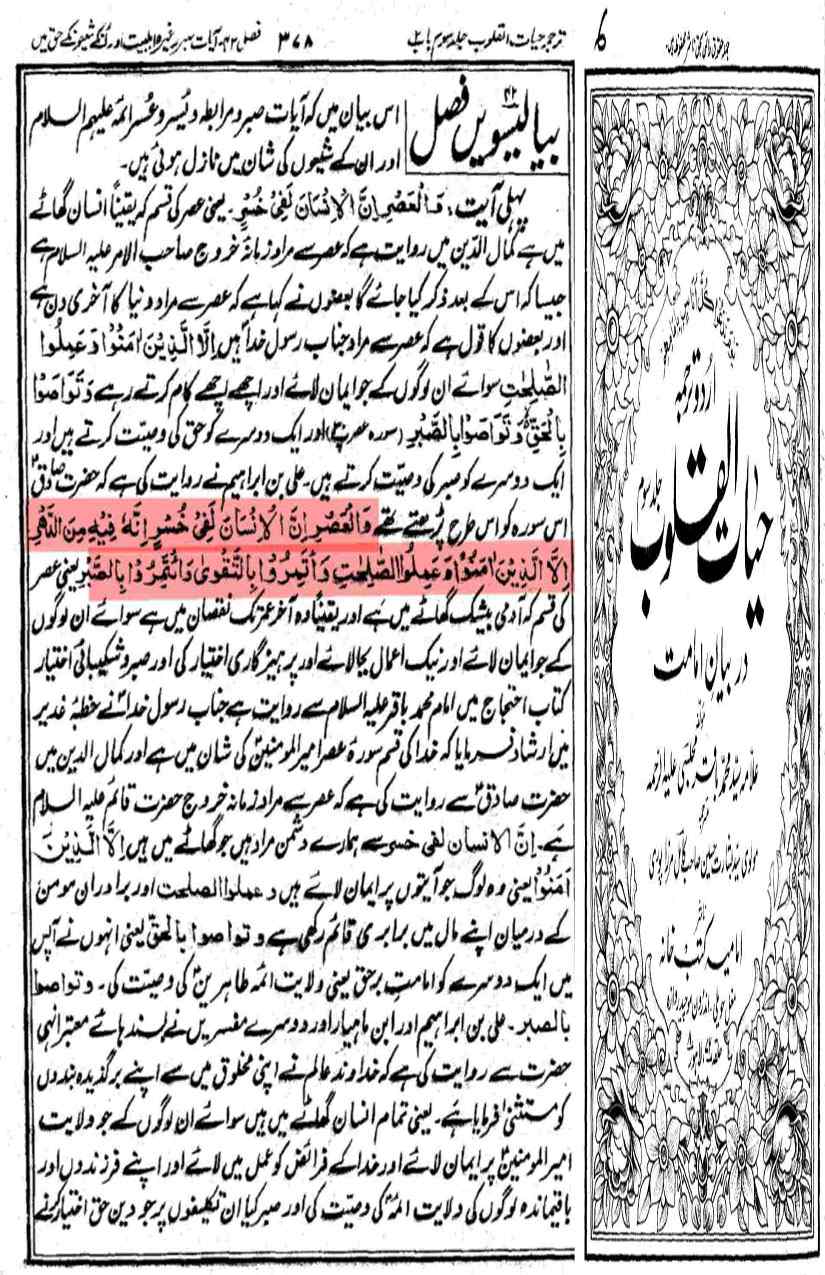 ترجمہ حیات القلوب جلد سوم باب
۳۷۸
فصل ۴۲۔ آیات صبر وغیرہ اہلبیت اور انکے شیعونکے حق میں
۴۲
بیالیسویں فصل
اس بیان میں کہ آیات صبر و مرابطہ و یُسر و عُسر ائمہ علیہم السلام
اور ان کے شیعوں کی شان میں نازل ہوئی ہیں۔
پہلی آیت: وَالْعَصْرِ اِنَّ الْاِنْسَانَ لَفِیْ خُسْرٍ۔ یعنی عصر کی قسم کہ یقیناً انسان گھاٹے
میں ہے کمال الدین میں روایت ہے کہ عصر سے مراد زمانۂ خروج صاحب الامر علیہ السلام ہے
جیسا کہ اس کے بعد ذکر کیا جائے گا بعضوں نے کہا ہے کہ عصر سے مراد دنیا کا آخری دن ہے
اور بعضوں کا قول ہے کہ عصر سے مراد جناب رسول خداؐ ہیں اِلَّا الَّذِیْنَ اٰمَنُوْا وَعَمِلُوا
الصّٰلِحٰتِ سوائے ان لوگوں کے جو ایمان لائے اور اچھے اچھے کام کرتے رہے وَتَوَاصَوْا
بِالْحَقِّ وَتَوَاصَوْا بِالصَّبْرِ (سورہ عصر پ۳۰) اور ایک دوسرے کو حق کی وصیت کرتے ہیں اور
ایک دوسرے کو صبر کی وصیت کرتے ہیں۔ علی بن ابراہیم نے روایت کی ہے کہ حضرت صادقؑ
اس سورہ کو اس طرح پڑھتے تھے وَالْعَصْرِ اِنَّ الْاِنْسَانَ لَفِیْ خُسْرٍ اِنَّهٗ فِیْهِ مِنَ الدَّهْرِ
اِلَّا الَّذِیْنَ اٰمَنُوْا وَعَمِلُوا الصّٰلِحٰتِ وَأْتَمِرُوْا بِالتَّقْوٰی وَأْتَمِرُوْا بِالصَّبْرِ یعنی عصر
کی قسم کہ آدمی بیشک گھاٹے میں ہے اور یقیناً وہ آخر عمر تک نقصان میں ہے سوائے ان لوگوں
کے جو ایمان لائے اور نیک اعمال بجالائے اور پرہیزگاری اختیار کی اور صبر و شکیبائی اختیار
کتاب احتجاج میں امام محمد باقر علیہ السلام سے روایت ہے جناب رسول خداؐ نے خطبۂ غدیر
میں ارشاد فرمایا کہ خدا کی قسم سورۂ عصر امیر المومنینؑ کی شان میں ہے اور کمال الدین میں
حضرت صادقؑ سے روایت کی ہے کہ عصر سے مراد زمانہ خروج حضرت قائم علیہ السلام
ہے۔ اِنَّ الاِنسان لفی خسر سے ہمارے دشمن مراد ہیں جو گھاٹے میں ہیں اِلَّا الَّذِیْنَ
اٰمَنُوْا یعنی وہ لوگ جو آیتوں پر ایمان لائے ہیں وعملوا الصلحت اور برادران مومن
کے درمیان اپنے مال میں برابری قائم رکھی ہے وتواصوا بالحق یعنی انہوں نے آپس
میں ایک دوسرے کو امامتِ برحق یعنی ولایت ائمہ طاہرینؑ کی وصیت کی۔ وتواصوا
بالصبر۔ علی بن ابراہیم اور ابن ماہیار اور دوسرے مفسرین نے بسند ہائے معتبر انہی
حضرت سے روایت کی ہے کہ خداوند عالم نے اپنی مخلوق میں سے اپنے برگذیدہ بندوں
کو مستثنیٰ فرمایا ہے۔ یعنی تمام انسان گھاٹے میں ہیں سوائے ان لوگوں کے جو ولایت
امیر المومنینؑ پر ایمان لائے اور خدا کے فرائض کو عمل میں لائے اور اپنے فرزندوں اور
باقیماندہ لوگوں کی ولایت ائمہؑ کی وصیت کی اور صبر کیا ان تکلیفوں پر جو دین حق اختیار کرنے
6
اردو ترجمہ
حیات القلوب
جلد سوم
در بیان امامت
مؤلفہ
علامہ سید محمد باقر مجلسی علیہ الرحمہ
مترجمہ
مولوی سید بشارت حسین صاحب کامل مرزا پوری
ناشر
امامیہ کتب خانہ